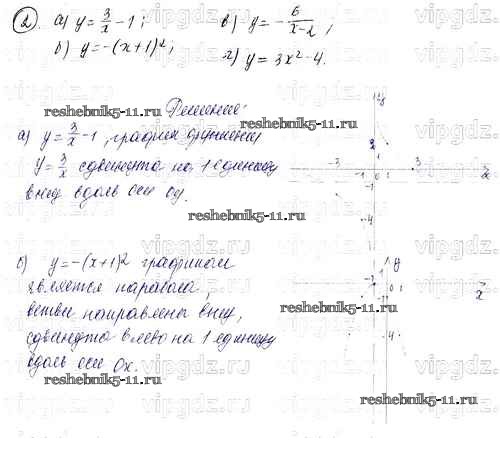 2. а) y = 3/x - 1; в) y = - 6/(x-2);
б) y = -(x+1)²; г) y = 3x² - 4.
Решение:
reshebnik5-11.ru.
reshebnik5-11.ru
а) y = 3/x - 1, график функции
y = 3/x сдвинута на 1 единицу
вниз вдоль оси оу.
reshebnik5-11.ru
y
2
1
-3 -1 0 1 3
-1
-4
x
б) y = -(x+1)² графиком
является парабола,
ветви направлены вниз,
сдвинута влево на 1 единицу
вдоль оси Ox.
reshebnik5-11.ru
y
1
-2 -1 0 1
x
-4
reshebnik5-11.ru
reshebnik5-11.ru
vipgdz.ru
vipgdz.ru
vipgdz.ru
vipgdz.ru
vipgdz.ru
vipgdz.ru